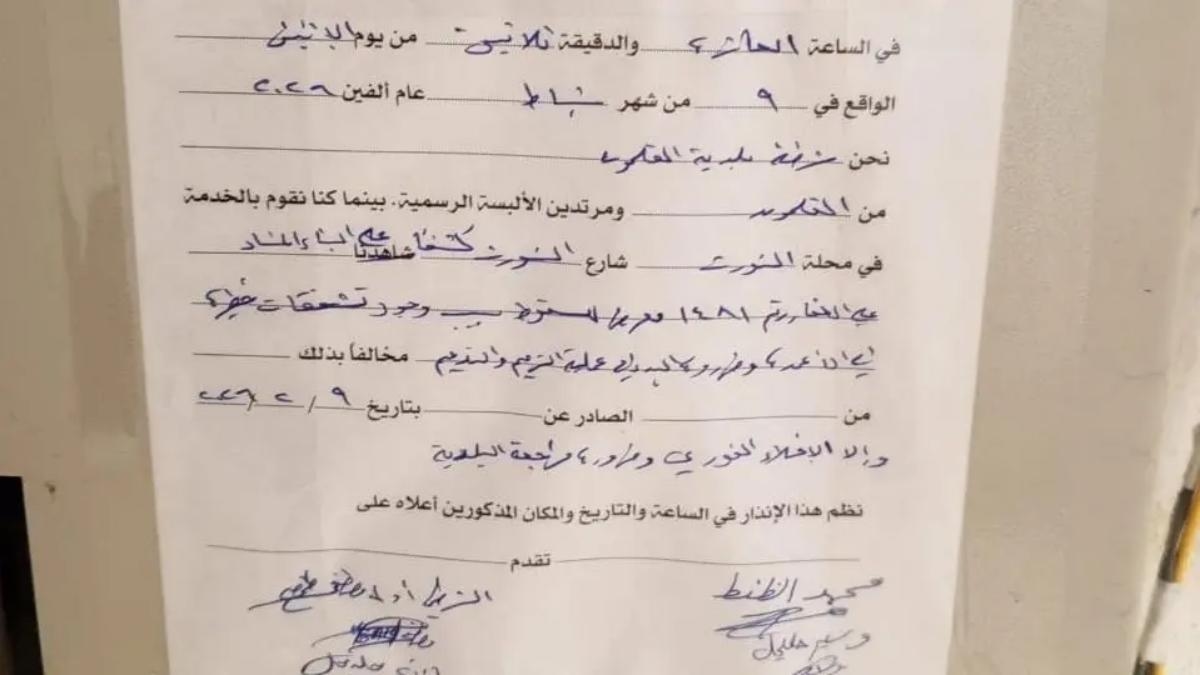 في الساعة العاشرة والدقيقة ثلاثين من يوم الإثنين
الواقع في ٩ من شهر شباط عام ألفين ٢٠٢٦
نحن شرطة بلدية القلمون
من القلمون ومرتدين الألبسة الرسمية. بينما كنا نقوم بالخدمة
في محلة شارع شاهدنا كشفاً على البناء المشاد
على العقار رقم ١٤٨١ معرض للسقوط بسبب وجود تشققات خطيرة
في الأعمدة وضرورة البدء في عملية الترميم والتدعيم مخالفاً بذلك
من الصادر عن بتاريخ ٩ / ٢ / ٢٠٢٦
وإلا الإخلاء الفوري وضرورة مراجعة البلدية
نظم هذا الإنذار في الساعة والتاريخ والمكان المذكورين أعلاه على
تقدم
محمد الظنط
وسيم